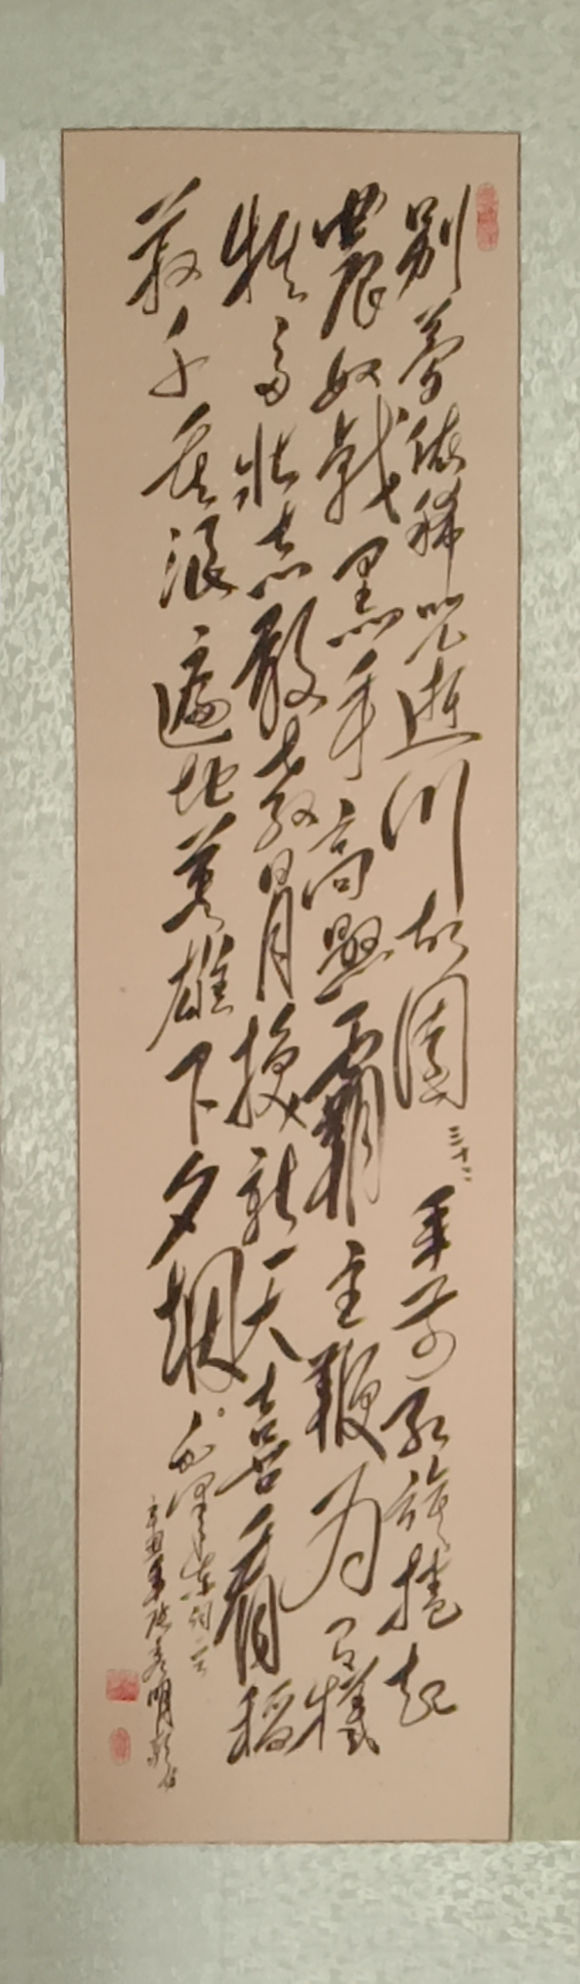 别梦依稀咒逝川故园三十二年前红旗捲起
農奴戟黑手高懸霸主鞭为有犧
牲多壮志敢教日月换新天喜看稻
菽千重浪遍地英雄下夕烟
毛泽东詞一首
辛丑年